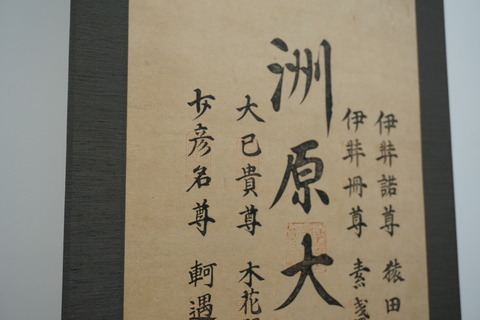 伊弉諾尊 猿田
伊弉冊尊 素戔
洲原大
大巳貴尊 木花
少彦名尊 軻遇